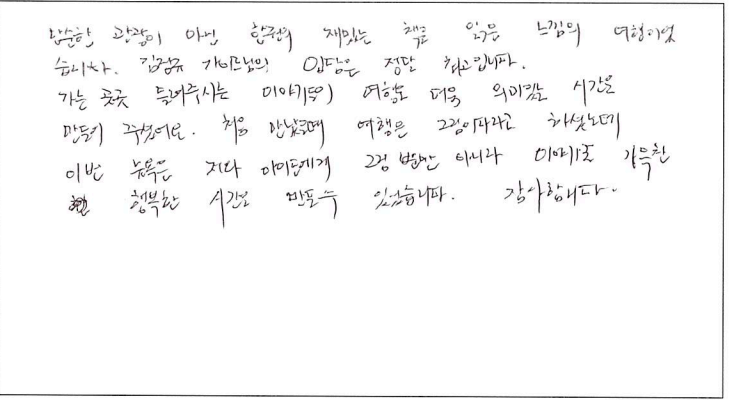 단순한 관광이 아닌 한편의 재밌는 책을 읽은 느낌의 여행이었
습니다. 김정규 가이드님의 입담은 정말 최고입니다.
가는 곳곳 들려주시는 이야기들이 여행을 더욱 의미있는 시간을
만들어 주셨어요. 처음 만났을때 여행은 그림이라고 하셨는데
이번 뉴욕은 저와 아이들에게 그림 뿐만 아니라 이야기로 가득찬
행복한 시간으로 만들수 있었습니다. 감사합니다.